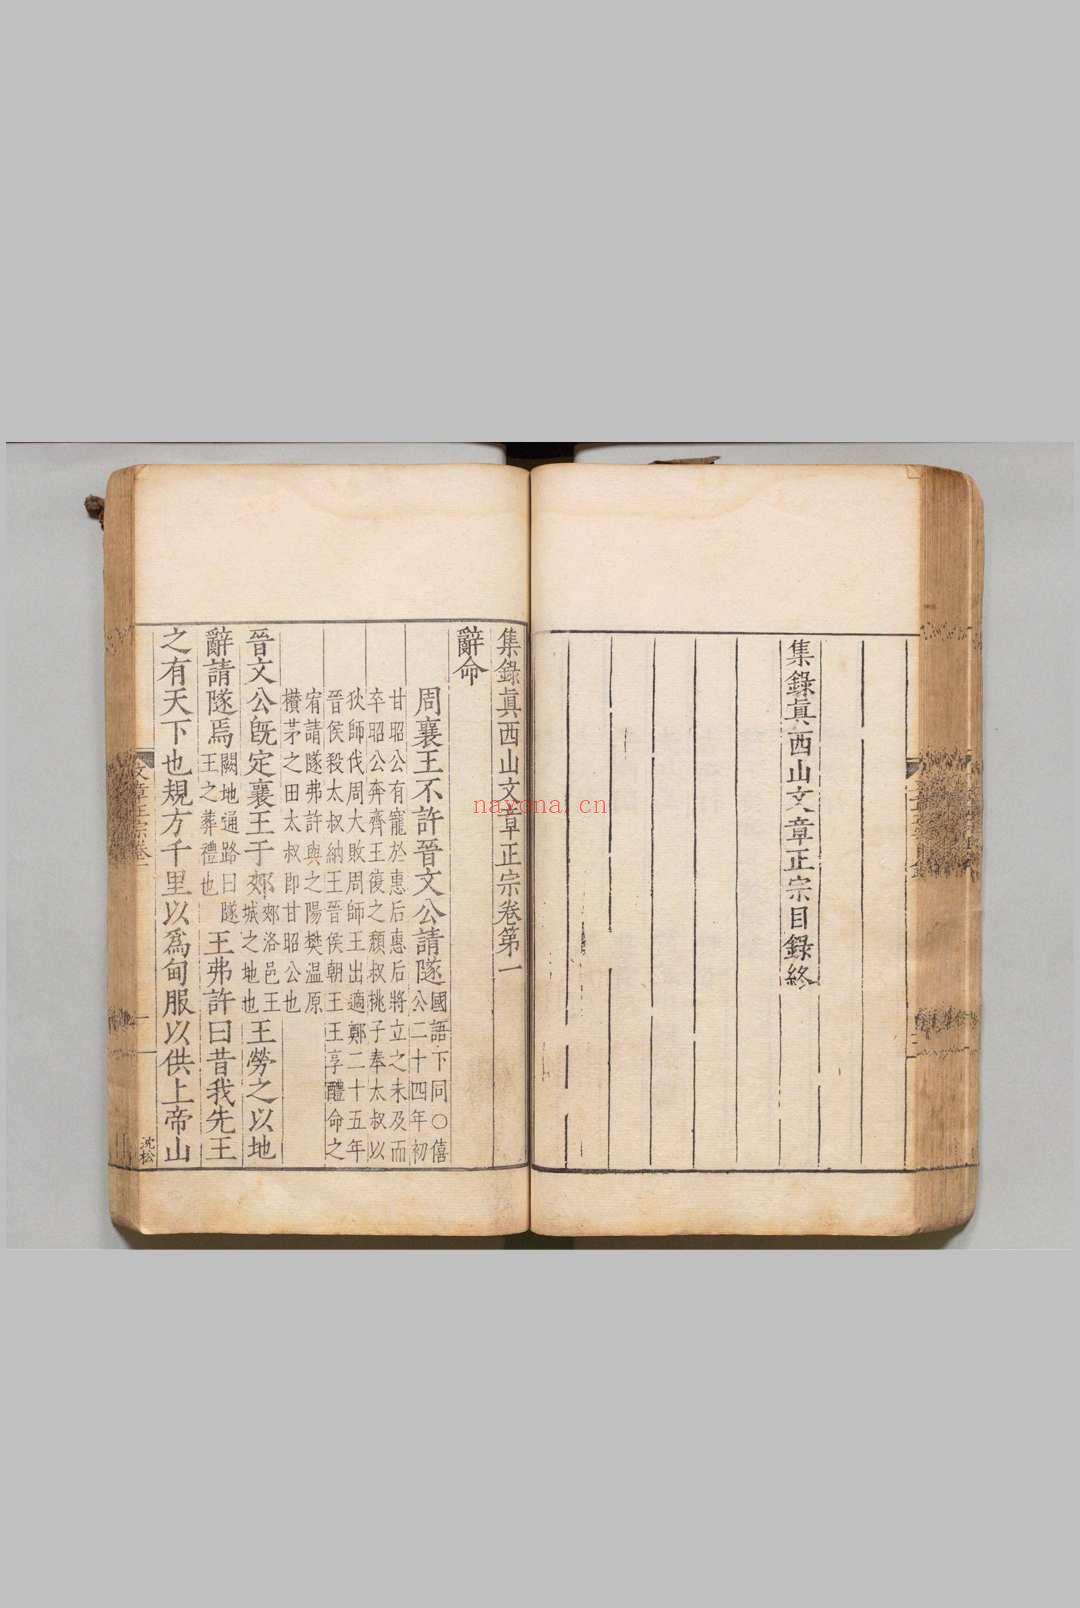 集錄眞西山文章正宗目錄終
集錄眞西山文章正宗卷第一
辭命
周襄王不許晉文公請隧國語下同○僖公二十四年初
甘昭公有寵於惠后惠后將立之未及而
卒昭公奔齊王復之頹叔桃子奉太叔以
狄師伐周大敗周師王出適鄭二十五年
晉侯殺太叔納王晉侯朝王王享醴命之
宥請隧弗許與之陽樊温原
攢茅之田太叔即甘昭公也
晉文公旣定襄王于郟郟洛邑王城之地也王勞之以地
辭請隧焉闕地通路曰隧王之葬禮也王弗許曰昔我先王
之有天下也規方千里以爲甸服以供上帝山
文章正宗卷一
沈松
nayona.cn